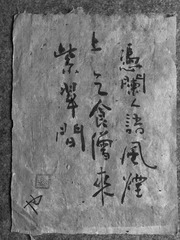 憑闌人語風煙
上乞食僧來
紫翠間